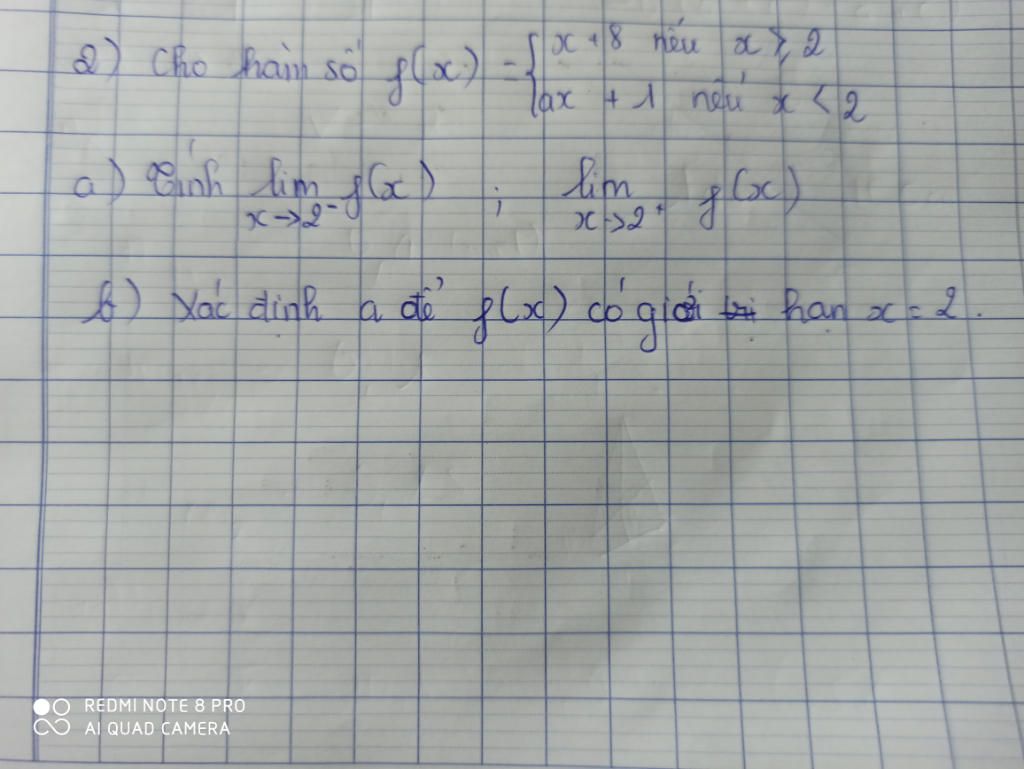 2) Cho hàm số f(x) = { x + 8 nếu x ≥ 2
ax + 1 nếu x < 2
a) Tính lim f(x) ; lim f(x)
x→2⁻ x→2⁺
b) Xác định a để f(x) có giới hạn x = 2.
REDMI NOTE 8 PRO
AI QUAD CAMERA